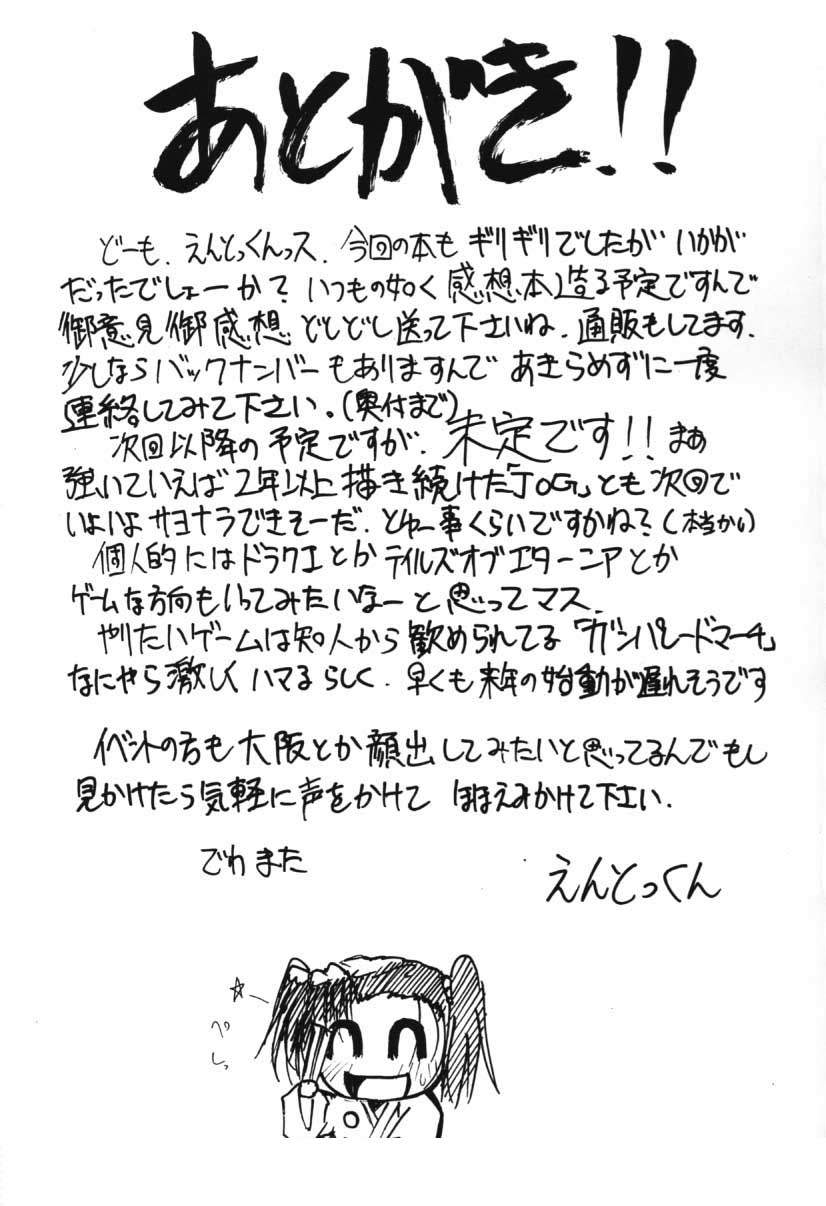 あとがき!!
どーも、えんとっくんっス、今回の本もギリギリでしたがいかが
だったでしょーか？いつもの如く感想本造る予定ですんで
御意見御感想どしどし送って下さいね、通販もしてます、
少しならバックナンバーもありますんであきらめずに一度
連絡してみて下さい。(奥付まで)
次回以降の予定ですが、未定です!!まぁ
強いていえば2年以上描き続けた「JOG」とも次回で
いよいよサヨナラできそーだ、とゆー事くらいですかね？(本当かい)
個人的にはドラクエとかテイルズオブエターニアとか
ゲームな方向もいってみたいなーと思ってマス、
やりたいゲームは知人から歓められてる「ガンパレードマーチ」
なにやら激しくハマるらしく、早くも来年の始動が遅れそうです
イベントの方も大阪とか顔出してみたいと思ってるんでもし
見かけたら気軽に声をかけてほほえみかけて下さい、
でわまた
えんとっくん
ぺしっ